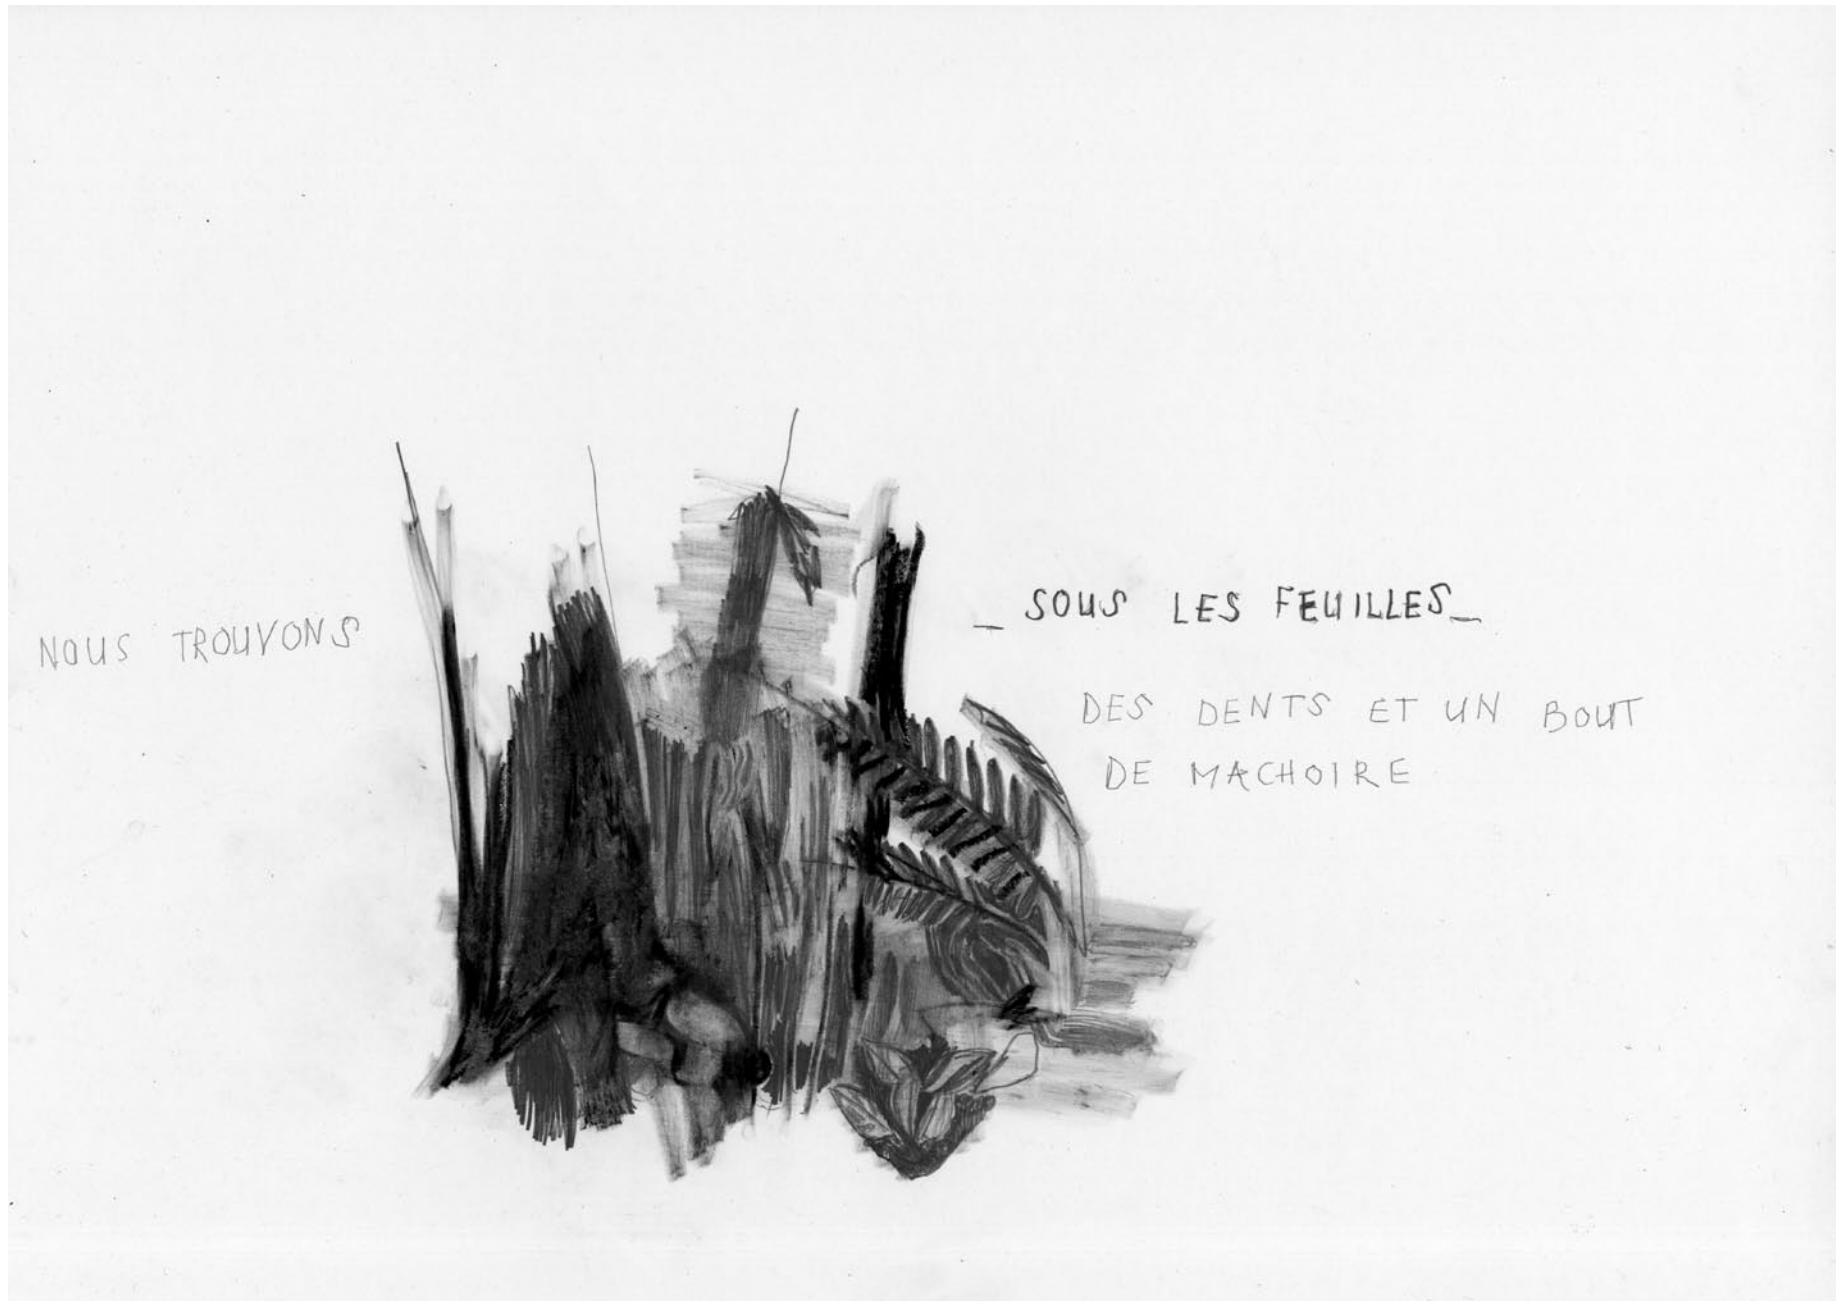 NOUS TROUVONS
_ SOUS LES FEUILLES_
DES DENTS ET UN BOUT
DE MACHOIRE